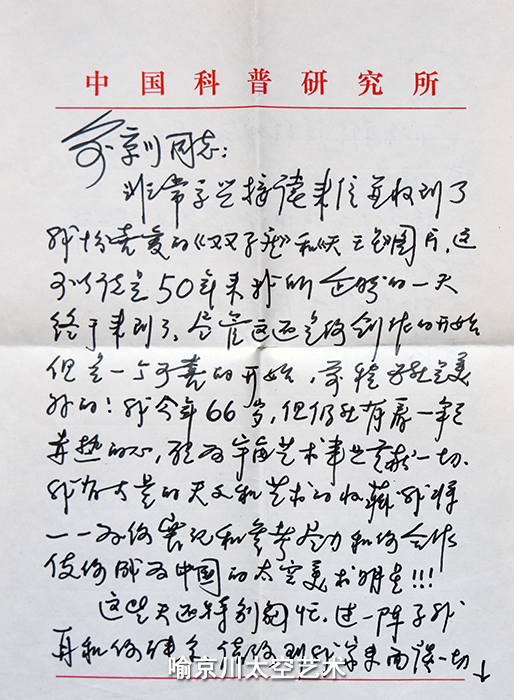 中国科普研究所
喻京川同志：
非常高兴接读来信并收到了
我怡喜爱的《双子座》和《天王》图片，这
可以说是50年来我的企盼的一天
终于来到了。尽管这还是你创作的开始
但是一个可喜的开始，前程是美
好的！我今年66岁，但仍然有着一颗
赤热的心，愿为宇宙艺术事业贡献一切。
我有大量的天文和艺术的收藏，我将
一一为你借和参考，尽力和你合作
使你成为中国的太空美术明星!!!
这些天还特别忙，过一阵子我
再和你，请你到我家来面谈一切↓
喻京川太空艺术